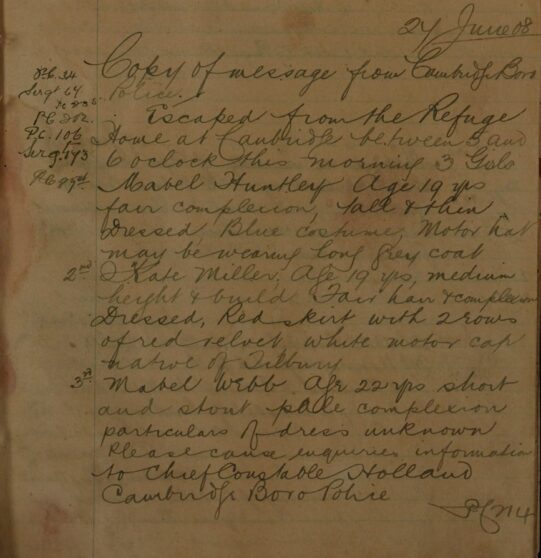 27 June 08
Copy of message from Cambridge Boro
Police.
P.C. 34
Sergt 64
P.C. 202.
P.C. 106
Serg. 173
Escaped from the Refuge
Home at Cambridge between 5 and
6 oclock this morning 3 Girls
Mabel Huntley Age 19 yrs
fair complexion, tall & thin
Dressed, Blue costume, Motor hat
may be wearing long grey coat
2nd Kate Miller, Age 19 yrs, medium
height & build Fair hair & complexion
Dressed, Red skirt with 2 rows
of red velvet, white motor cap
native of Tilbury
3rd Mabel Webb Age 22 yrs short
and stout pale complexion
particulars of dress unknown
Please cause enquiries information
to Chief Constable Holland
Cambridge Boro Police